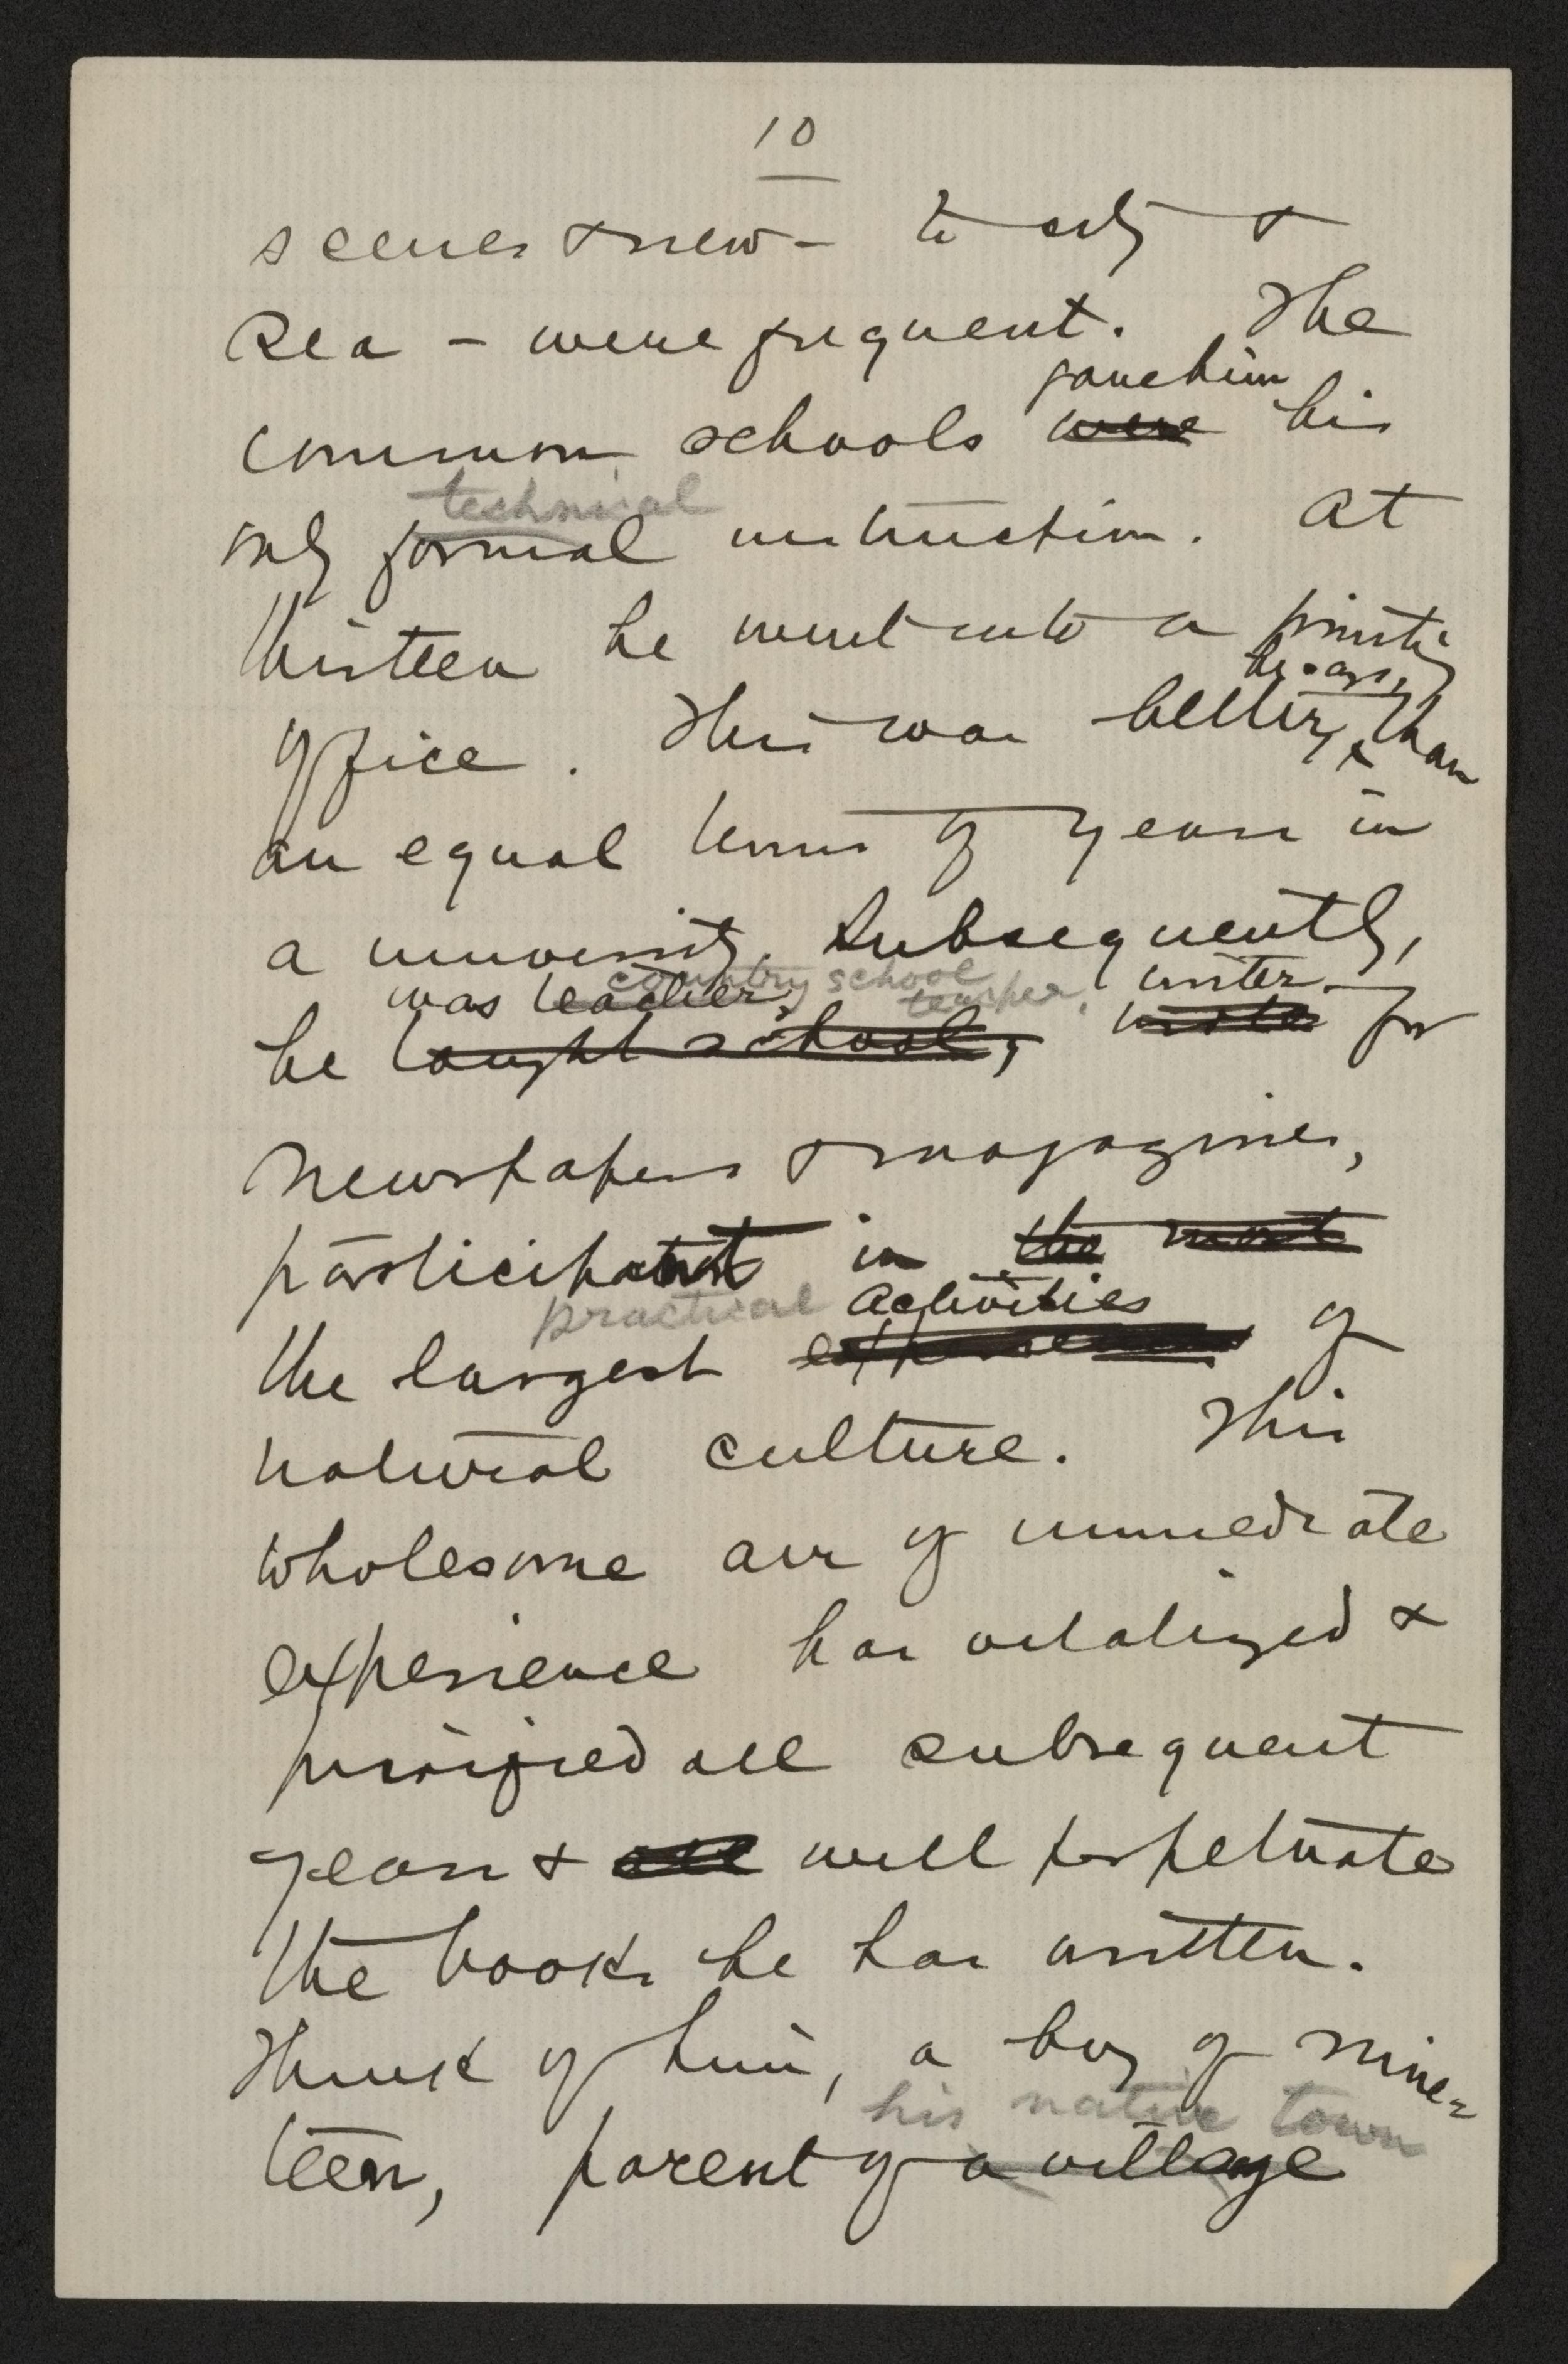 10
scenes & new - to city &
Sea - were frequent. The
gave him
common schools were his
technical
only formal instruction. At
thirteen he went into a printing
he says,
office. This was better, than
an equal term of years in
a university. Subsequently,
country school
was teacher, teacher, writer
he taught school, wrote for
newspapers & magazines,
participant in the most
practical activities
the largest experience of
natural culture. This
wholesome air of immediate
experience has vitalized &
purified all subsequent
years & all will perpetuate
the books he has written.
Think of him, a boy of nine-
his native town
teen, parent of a village